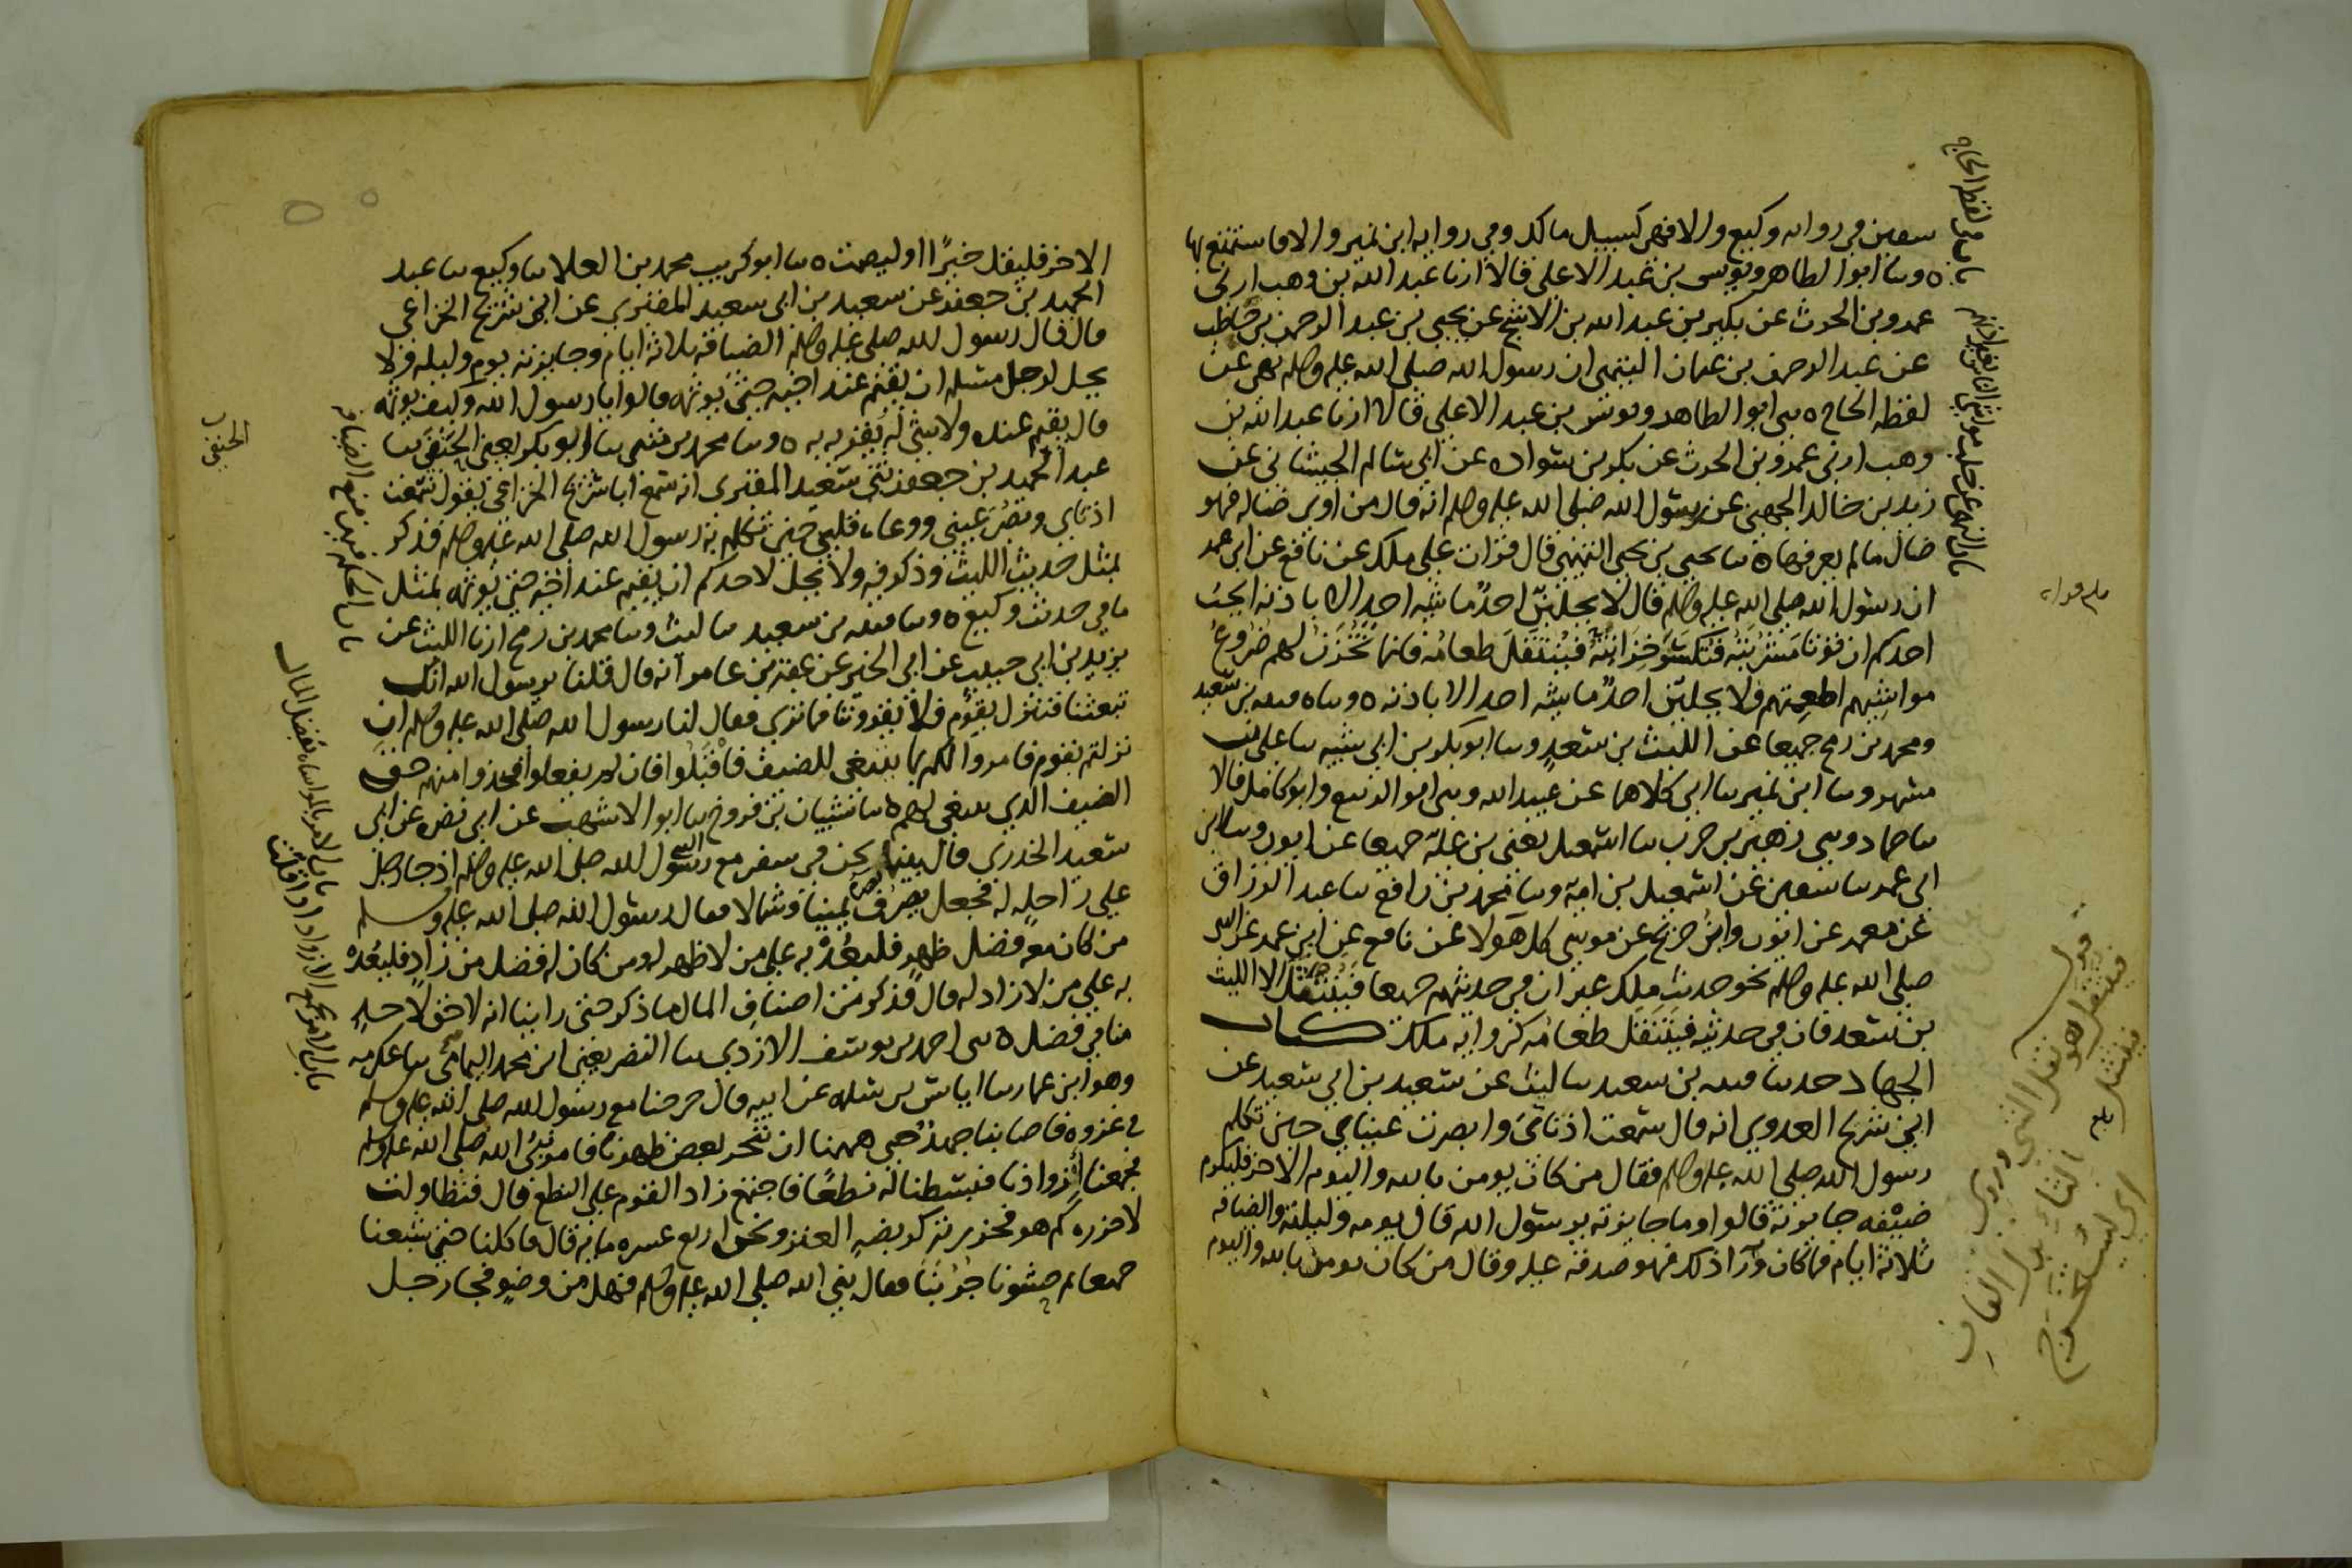 سفين في رواية وكيع والا فهي كسبيل مالك وفي رواية ابن نمير والا فاستمتع بها
وسا ابو الطاهر ويونس بن عبد الاعلى قالا ارنا عبد الله بن وهب ارني
عمرو بن الحرث عن بكير بن عبد الله بن الاشج عن يحيى بن عبد الرحمن بن حاطب
عن عبد الرحمن بن عثمان التيمي ان رسول الله صلى الله عليه وسلم نهى عن
لقطة الحاج ه سي ابو الطاهر ويونس بن عبد الاعلى قالا ارنا عبد الله بن
وهب ارني عمرو بن الحرث عن بكر بن سوادة عن ابي سالم الجيشاني عن
زيد بن خالد الجهني عن رسول الله صلى الله عليه وسلم انه قال من اوى ضالة فهو
ضال ما لم يعرفها ه سا يحيى بن يحيى التميمي قال قرات على ملك عن نافع عن ابن عمر
ان رسول الله صلى الله عليه وسلم قال لا يحلبن احد ماشية احد الا باذنه ايحب
احدكم ان توتا مشربته فتكسر خزانته فينتقل طعامه فانما تخزن لهم ضروع
مواشيهم اطعمتهم فلا يحلبن احد ماشية احد الا باذنه ه وساه قتيبة بن سعيد
ومحمد بن رمح جميعا عن الليث بن سعد وسا ابو بكر بن ابي شيبه سا علي بن
مسهر وسا ابن نمير سا ابي كلاهما عن عبيد الله وسي ابو الربيع وابو كامل قالا
سا حماد وسي زهير بن حرب سا اسمعيل يعني بن علية جميعا عن ايوب وسا ابن
ابي عمر سا سفين عن اسمعيل بن امية وسا محمد بن رافع سا عبد الرزاق
عن معمر عن ايوب وابن جريج عن موسى كل هولا عن نافع عن ابن عمر عن النبي
صلى الله عليه وسلم نحو حديث ملك غير ان في حديثهم جميعا فينتثل الا الليث
بن سعد فان في حديثه فينتقل طعامه كرواية ملك كتاب
الجهاد حدسا قتيبه بن سعيد سا ليث عن سعيد بن ابي سعيد عن
ابي شريح العدوي انه قال سمعت اذناي وابصرت عيناي حين تكلم
رسول الله صلى الله عليه وسلم فقال من كان يومن بالله واليوم الاخر فليكرم
ضيفه جايزته قالوا وما جايزته يرسول الله قال يومه وليلته والضيافه
ثلاثة ايام فما كان ورآ ذلك فهو صدقة عليه وقال من كان يومن بالله واليوم
باب في لقطة الحاج
باب النهي عن حلب مواشي الناس بغير اذنهم
فينتقل هو نقل الشي وروي
فينتثل
بدل القاف
اي يستخرج
الاخر فليقل خيرًا او ليصمت ه سا ابو كريب محمد بن العلا سا وكيع سا عبد
الحميد بن جعفر عن سعيد بن ابي سعيد المقبري عن ابي شريح الخزاعي
قال قال رسول الله صلى الله عليه وسلم الضيافة ثلاثة ايام وجايزته يوم وليله ولا
يحل لرجل مسلم ان يقيم عند اخيه حتى يوثمه قالوا يا رسول الله وكيف يوثمه
قال يقيم عنده ولا شي له يقريه به ه وسا محمد بن مثنى سا ابو بكر يعني الحنفي سا
عبد الحميد بن جعفر ثني سعيد المقبري انه سمع ابا شريح الخزاعي يقول سمعت
اذناي وبصر عيني ووعاه قلبي حين تكلم به رسول الله صلى الله عليه وسلم فذكر
بمثل حديث الليث وذكر فيه ولا يحل لاحدكم ان يقيم عند اخيه حتى يوثمه بمثل
ما في حديث وكيع ه وسا قتيبه بن سعيد سا ليث وسا محمد بن رمح ارنا الليث عن
يزيد بن ابي حبيب عن ابي الخير عن عقبة بن عامر انه قال قلنا يرسول الله انك
تبعثنا فننزل بقوم فلا يقروننا فما ترى فقال لنا رسول الله صلى الله عليه وسلم ان
نزلتم بقوم فامروا لكم بما ينبغي للضيف فاقبلوا فان لم يفعلوا فخذوا منهم حق
الضيف الذي ينبغي لهم ه سا شيبان بن فروخ سا ابو الاشهب عن ابي نضره عن ابي
سعيد الخدري قال بينما نحن في سفر مع رسول الله صلى الله عليه وسلم اذ جا رجل
على راحلة له فجعل يصرف بصره يمينا وشمالا فقال رسول الله صلى الله عليه وسلم
من كان معه فضل ظهر فليعد به على من لا ظهر له ومن كان له فضل من زاد فليعد
به على من لا زاد له قال فذكر من اصناف المال ما ذكر حتى راينا انه لا حق لاحد
منا في فضل ه سي احمد بن يوسف الازدي سا النضر يعني ابن محمد اليمامي سا عكرمه
وهو ابن عمار سا اياس بن سلمه عن ابيه قال خرجنا مع رسول الله صلى الله عليه وسلم
في غزوه فاصابنا جهد حتى هممنا ان ننحر بعض ظهرنا فامر نبي الله صلى الله عليه وسلم
فجمعنا ازوادنا فبسطنا له نطعًا فاجتمع زاد القوم على النطع قال فتطاولت
لاحزره كم هو فحزرته كربضة العنز ونحن اربع عشره مايه قال فاكلنا حتى شبعنا
جميعا ثم حشونا جربنا فقال نبي الله صلى الله عليه وسلم فهل من وضو فجا رجل
الحنفي
باب الحكم فيمن منع الضيافه
باب الامر بالمواساه بفضل المال
باب الامر بجمع الازواد اذا قلت